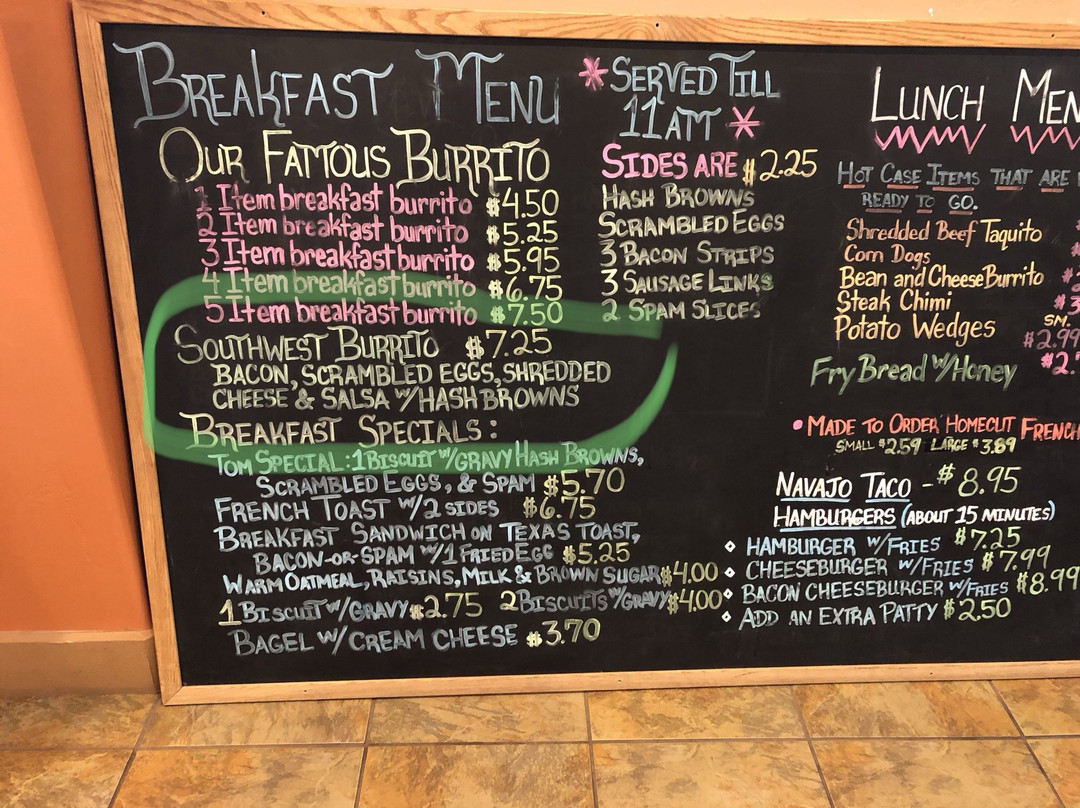 BREAKFAST MENU
OUR FAMOUS BURRITO
1 Item breakfast burrito $4.50
2 Item breakfast burrito $5.25
3 Item breakfast burrito $5.95
4 Item breakfast burrito $6.75
5 Item breakfast burrito $7.50
SOUTHWEST BURRITO $7.25
BACON, SCRAMBLED EGGS, SHREDDED
CHEESE & SALSA W/HASH BROWNS
BREAKFAST SPECIALS:
TOM SPECIAL: 1 BISCUIT W/GRAVY HASH BROWNS,
SCRAMBLED EGGS, & SPAM $5.70
FRENCH TOAST W/2 SIDES $6.75
BREAKFAST SANDWICH ON TEXAS TOAST,
BACON-OR-SPAM W/1 FRIED EGG $5.25
WARM OATMEAL, RAISINS, MILK & BROWN SUGAR $4.00
1 BISCUIT W/GRAVY $2.75 2 BISCUITS W/GRAVY $4.00
BAGEL W/ CREAM CHEESE $3.70
*SERVED TILL
11 AM *
SIDES ARE $2.25
HASH BROWNS
SCRAMBLED EGGS
3 BACON STRIPS
3 SAUSAGE LINKS
2 SPAM SLICES
LUNCH MEN
HOT CASE ITEMS THAT ARE
READY TO GO.
Shredded Beef Taquito
Corn Dogs
Bean and Cheese Burrito
Steak Chimi $3
Potato Wedges SM.
$2.99
Fry Bread W/Honey $2.
• MADE TO ORDER HOMECUT FRENCH
SMALL $2.59 LARGE $3.89
NAVAJO TACO - $8.95
HAMBURGERS (ABOUT 15 MINUTES)
⋄ HAMBURGER W/FRIES $7.25
⋄ CHEESEBURGER W/FRIES $7.99
⋄ BACON CHEESEBURGER W/FRIES $8.99
⋄ ADD AN EXTRA PATTY $2.50